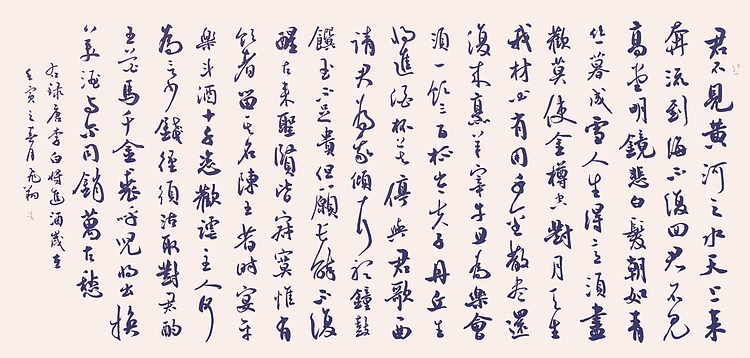 君不見黃河之水天上來
奔流到海不復回君不見
高堂明鏡悲白髮朝如青
絲暮成雪人生得意須盡
歡莫使金樽空對月天生
我材必有用千金散盡還
復來烹羊宰牛且為樂會
須一飲三百杯岑夫子丹丘生
將進酒杯莫停與君歌一曲
請君為我傾耳聽鐘鼓
饌玉不足貴但願長醉不復
醒古來聖賢皆寂寞惟有
飲者留其名陳王昔時宴平
樂斗酒十千恣歡謔主人何
為言少錢徑須沽取對君酌
五花馬千金裘呼兒將出換
美酒與爾同銷萬古愁
右錄唐李白將進酒歲在
壬寅之月飛翔